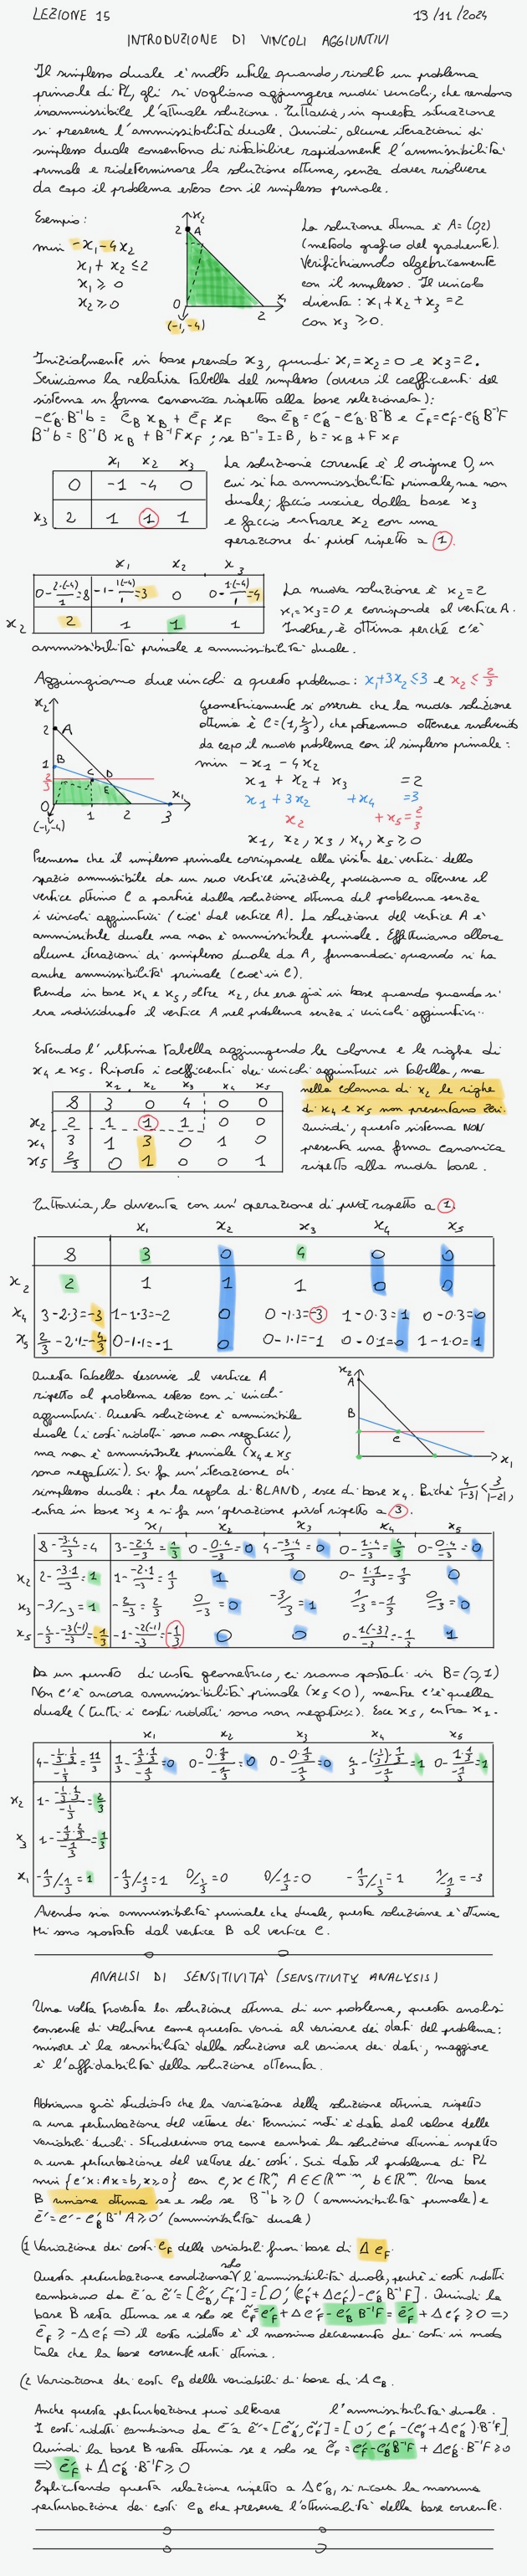 LEZIONE 15 13/11/2024
INTRODUZIONE DI VINCOLI AGGIUNTIVI
Il simplesso duale è molto utile quando, risolto un problema
primale di PL, gli si vogliono aggiungere nuovi vincoli, che rendono
inammissibile l'attuale soluzione. Tuttavia, in questa situazione
si preserva l'ammissibilità duale. Quindi, alcune iterazioni di
simplesso duale consentono di ristabilire rapidamente l'ammissibilità
primale e rideterminare la soluzione ottima, senza dover risolvere
da capo il problema esteso con il simplesso primale.
Esempio:
min -x₁-4x₂
x₁+x₂≤2
x₁≥0
x₂≥0
x₂
2 A
0 2 x₁
(-1,-4)
La soluzione ottima è A=(0,2)
(metodo grafico del gradiente).
Verifichiamolo algebricamente
con il simplesso. Il vincolo
diventa: x₁+x₂+x₃=2
con x₃≥0.
Inizialmente in base prendo x₃, quindi x₁=x₂=0 e x₃=2.
Scriviamo la relativa tabella del simplesso (ovvero i coefficienti del
sistema in forma canonica rispetto alla base selezionata):
-c'_B·B⁻¹b = c̄_B x_B + c̄_F x_F con c̄_B=c'_B-c'_B·B⁻¹B e c̄_F=c'_F-c'_B B⁻¹F
B⁻¹b = B⁻¹B x_B + B⁻¹F x_F ; se B⁻¹=I=B, b=x_B+F x_F
x₁ x₂ x₃
0 -1 -4 0
x₃ 2 1 1 1
La soluzione corrente è l'origine O, in
cui si ha ammissibilità primale, ma non
duale; faccio uscire dalla base x₃
e faccio entrare x₂ con una
operazione di pivot rispetto a 1.
x₁ x₂ x₃
0-2·(-4)/1=8 -1-1(-4)/1=3 0 0-1·(-4)/1=4
x₂ 2 1 1 1
La nuova soluzione è x₂=2
x₁=x₃=0 e corrisponde al vertice A.
Inoltre, è ottima perché c'è
ammissibilità primale e ammissibilità duale.
Aggiungiamo due vincoli a questo problema: x₁+3x₂≤3 e x₂≤2/3
x₂
2 A
1 B
2/3 C D
E
0 1 2 3 x₁
(-1,-4)
Geometricamente si osserva che la nuova soluzione
ottima è C=(1,2/3), che potremmo ottenere risolvendo
da capo il nuovo problema con il simplesso primale:
min -x₁-4x₂
x₁+x₂+x₃ =2
x₁+3x₂ +x₄ =3
x₂ +x₅=2/3
x₁,x₂,x₃,x₄,x₅≥0
Premesso che il simplesso primale corrisponde alla visita dei vertici dello
spazio ammissibile da un suo vertice iniziale, proviamo a ottenere il
vertice ottimo C a partire dalla soluzione ottima del problema senza
i vincoli aggiuntivi (cioè dal vertice A). La soluzione del vertice A è
ammissibile duale ma non è ammissibile primale. Effettuiamo allora
alcune iterazioni di simplesso duale da A, fermandoci quando si ha
anche ammissibilità primale (cioè in C).
Prendo in base x₄ e x₅, oltre x₂, che era già in base quando quando si
era individuato il vertice A nel problema senza i vincoli aggiuntivi.
Estendo l'ultima tabella aggiungendo le colonne e le righe di
x₄ e x₅. Riporto i coefficienti dei vincoli aggiuntivi in tabella, ma
x₁ x₂ x₃ x₄ x₅
8 3 0 4 0 0
x₂ 2 1 1 1 0 0
x₄ 3 1 3 0 1 0
x₅ 2/3 0 1 0 0 1
nella colonna di x₂ le righe
di x₄ e x₅ non presentano zeri.
Quindi, questo sistema NON
presenta una forma canonica
rispetto alla nuova base.
Tuttavia, lo diventa con un'operazione di pivot rispetto a 1.
x₁ x₂ x₃ x₄ x₅
8 3 0 4 0 0
x₂ 2 1 1 1 0 0
x₄ 3-2·3=-3 1-1·3=-2 0 0-1·3=-3 1-0·3=1 0-0·3=0
x₅ 2/3-2·1=-4/3 0-1·1=-1 0 0-1·1=-1 0-0·1=0 1-1·0=1
Questa tabella descrive il vertice A
rispetto al problema esteso con i vincoli
aggiuntivi. Questa soluzione è ammissibile
duale (i costi ridotti sono non negativi),
ma non è ammissibile primale (x₄ e x₅
sono negativi). Si fa un'iterazione di
simplesso duale: per la regola di BLAND, esce di base x₄. Poiché 4/|-3|<3/|-2|,
entra in base x₃ e si fa un'operazione pivot rispetto a 3.
x₂
A
B
C
x₁
x₁ x₂ x₃ x₄ x₅
8-(-3·4)/-3=4 3-(-2·4)/-3=1/3 0-(0·4)/-3=0 4-(-3·4)/-3=0 0-(1·4)/-3=4/3 0-(0·4)/-3=0
x₂ 2-(-3·1)/-3=1 1-(-2·1)/-3=1/3 1 0 0-(1·1)/-3=1/3 0
x₃ -3/-3=1 -2/-3=2/3 0/-3=0 -3/-3=1 1/-3=-1/3 0/-3=0
x₅ -4/3-(-3(-1))/-3=-1/3 -1-(-2(-1))/-3=-1/3 0 0 0-(1(-3))/-3=-1/3 1
Da un punto di vista geometrico, ci siamo spostati in B=(0,1)
Non c'è ancora ammissibilità primale (x₅<0), mentre c'è quella
duale (tutti i costi ridotti sono non negativi). Esce x₅, entra x₁.
x₁ x₂ x₃ x₄ x₅
4-(-1/3·1/3)/(-1/3)=11/3 1/3-(-1/3·1/3)/(-1/3)=0 0-(0·1/3)/(-1/3)=0 0-(0·1/3)/(-1/3)=0 4/3-((-1/3)·1/3)/(-1/3)=1 0-(1·1/3)/(-1/3)=1
x₂ 1-(-1/3·1/3)/(-1/3)=2/3
x₃ 1-(-1/3·2/3)/(-1/3)=1/3
x₁ -1/3/-1/3=1 -1/3/-1/3=1 0/-1/3=0 0/-1/3=0 -1/3/-1/3=1 1/-1/3=-3
Avendo sia ammissibilità primale che duale, questa soluzione è ottima
Mi sono spostato dal vertice B al vertice C.
ANALISI DI SENSITIVITÀ (SENSITIVITY ANALYSIS)
Una volta trovata la soluzione ottima di un problema, questa analisi
consente di valutare come questa varia al variare dei dati del problema:
minore è la sensibilità della soluzione al variare dei dati, maggiore
è l'affidabilità della soluzione ottenuta.
Abbiamo già studiato che la variazione della soluzione ottima rispetto
a una perturbazione del vettore dei termini noti è data dal valore delle
variabili duali. Studieremo ora come cambia la soluzione ottima rispetto
a una perturbazione del vettore dei costi. Sia dato il problema di PL
min {c'x: Ax=b, x≥0} con c,x∈ℝⁿ, A∈ℝᵐ·ⁿ, b∈ℝᵐ. Una base
B rimane ottima se e solo se B⁻¹b≥0 (ammissibilità primale) e
c̄'=c'-c'_B B⁻¹A≥0' (ammissibilità duale)
(1 Variazione dei costi c_F delle variabili fuori base di Δc_F.
Questa perturbazione condiziona solo l'ammissibilità duale, perché i costi ridotti
cambiano da c̄' a c̃'=[c̃'_B, c̃'_F]=[0', (c'_F+Δc'_F)-c'_B B⁻¹F]. Quindi la
base B resta ottima se e solo se c̃'_F=c'_F+Δc'_F-c'_B B⁻¹F=c̄'_F+Δc'_F≥0 =>
c̄'_F≥-Δc'_F => il costo ridotto è il massimo decremento dei costi in modo
tale che la base corrente resti ottima.
(2 Variazione dei costi c_B delle variabili di base di Δc_B.
Anche questa perturbazione può alterare l'ammissibilità duale.
I costi ridotti cambiano da c̄' a c̃'=[c̃'_B, c̃'_F]=[0', c'_F-(c'_B+Δc'_B)·B⁻¹F]
Quindi la base B resta ottima se e solo se c̃'_F=c'_F-c'_B B⁻¹F+Δc'_B·B⁻¹F≥0
=> c̄'_F+Δc'_B·B⁻¹F≥0
Esplicitando questa relazione rispetto a Δc'_B, si ricava la massima
perturbazione dei costi c_B che preserva l'ottimalità della base corrente.